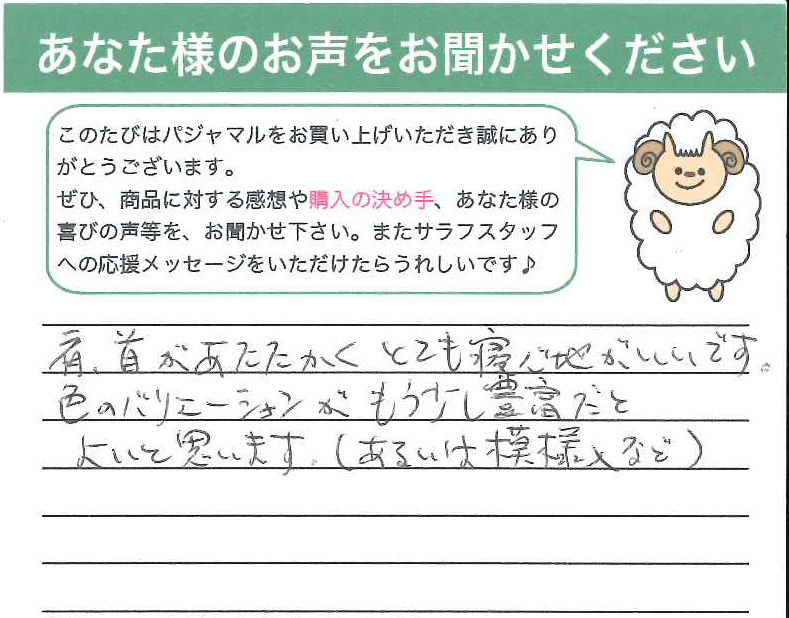 あなた様のお声をお聞かせください
このたびはパジャマルをお買い上げいただき誠にあり
がとうございます。
ぜひ、商品に対する感想や購入の決め手、あなた様の
喜びの声等を、お聞かせ下さい。またサラフスタッフ
への応援メッセージをいただけたらうれしいです♪
肩、首があたたかくとても寝心地がいいです。
色のバリエーションがもう少し豊富だと
よいと思います。(あるいは模様入など)